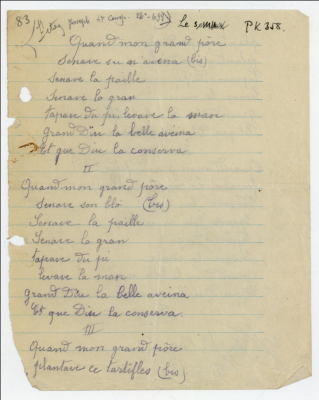 83) Joseph Le 3 MAX PK 358.
Quand mon grand père
Senave su n'avena (bis)
Senave la paille
Senave lo gran
tapave du pi levave la man
Grand Diu la belle aveina
Et que Diu la conserva
II
Quand mon grand père
Senave son blô (bis)
Senave la paille
Senave lo gran
tapave du pi
levave la man
Grand Diu la belle aveina
Et que Diu la conserva.
III
Quand mon grand père
plantave ce tartifles (bis)